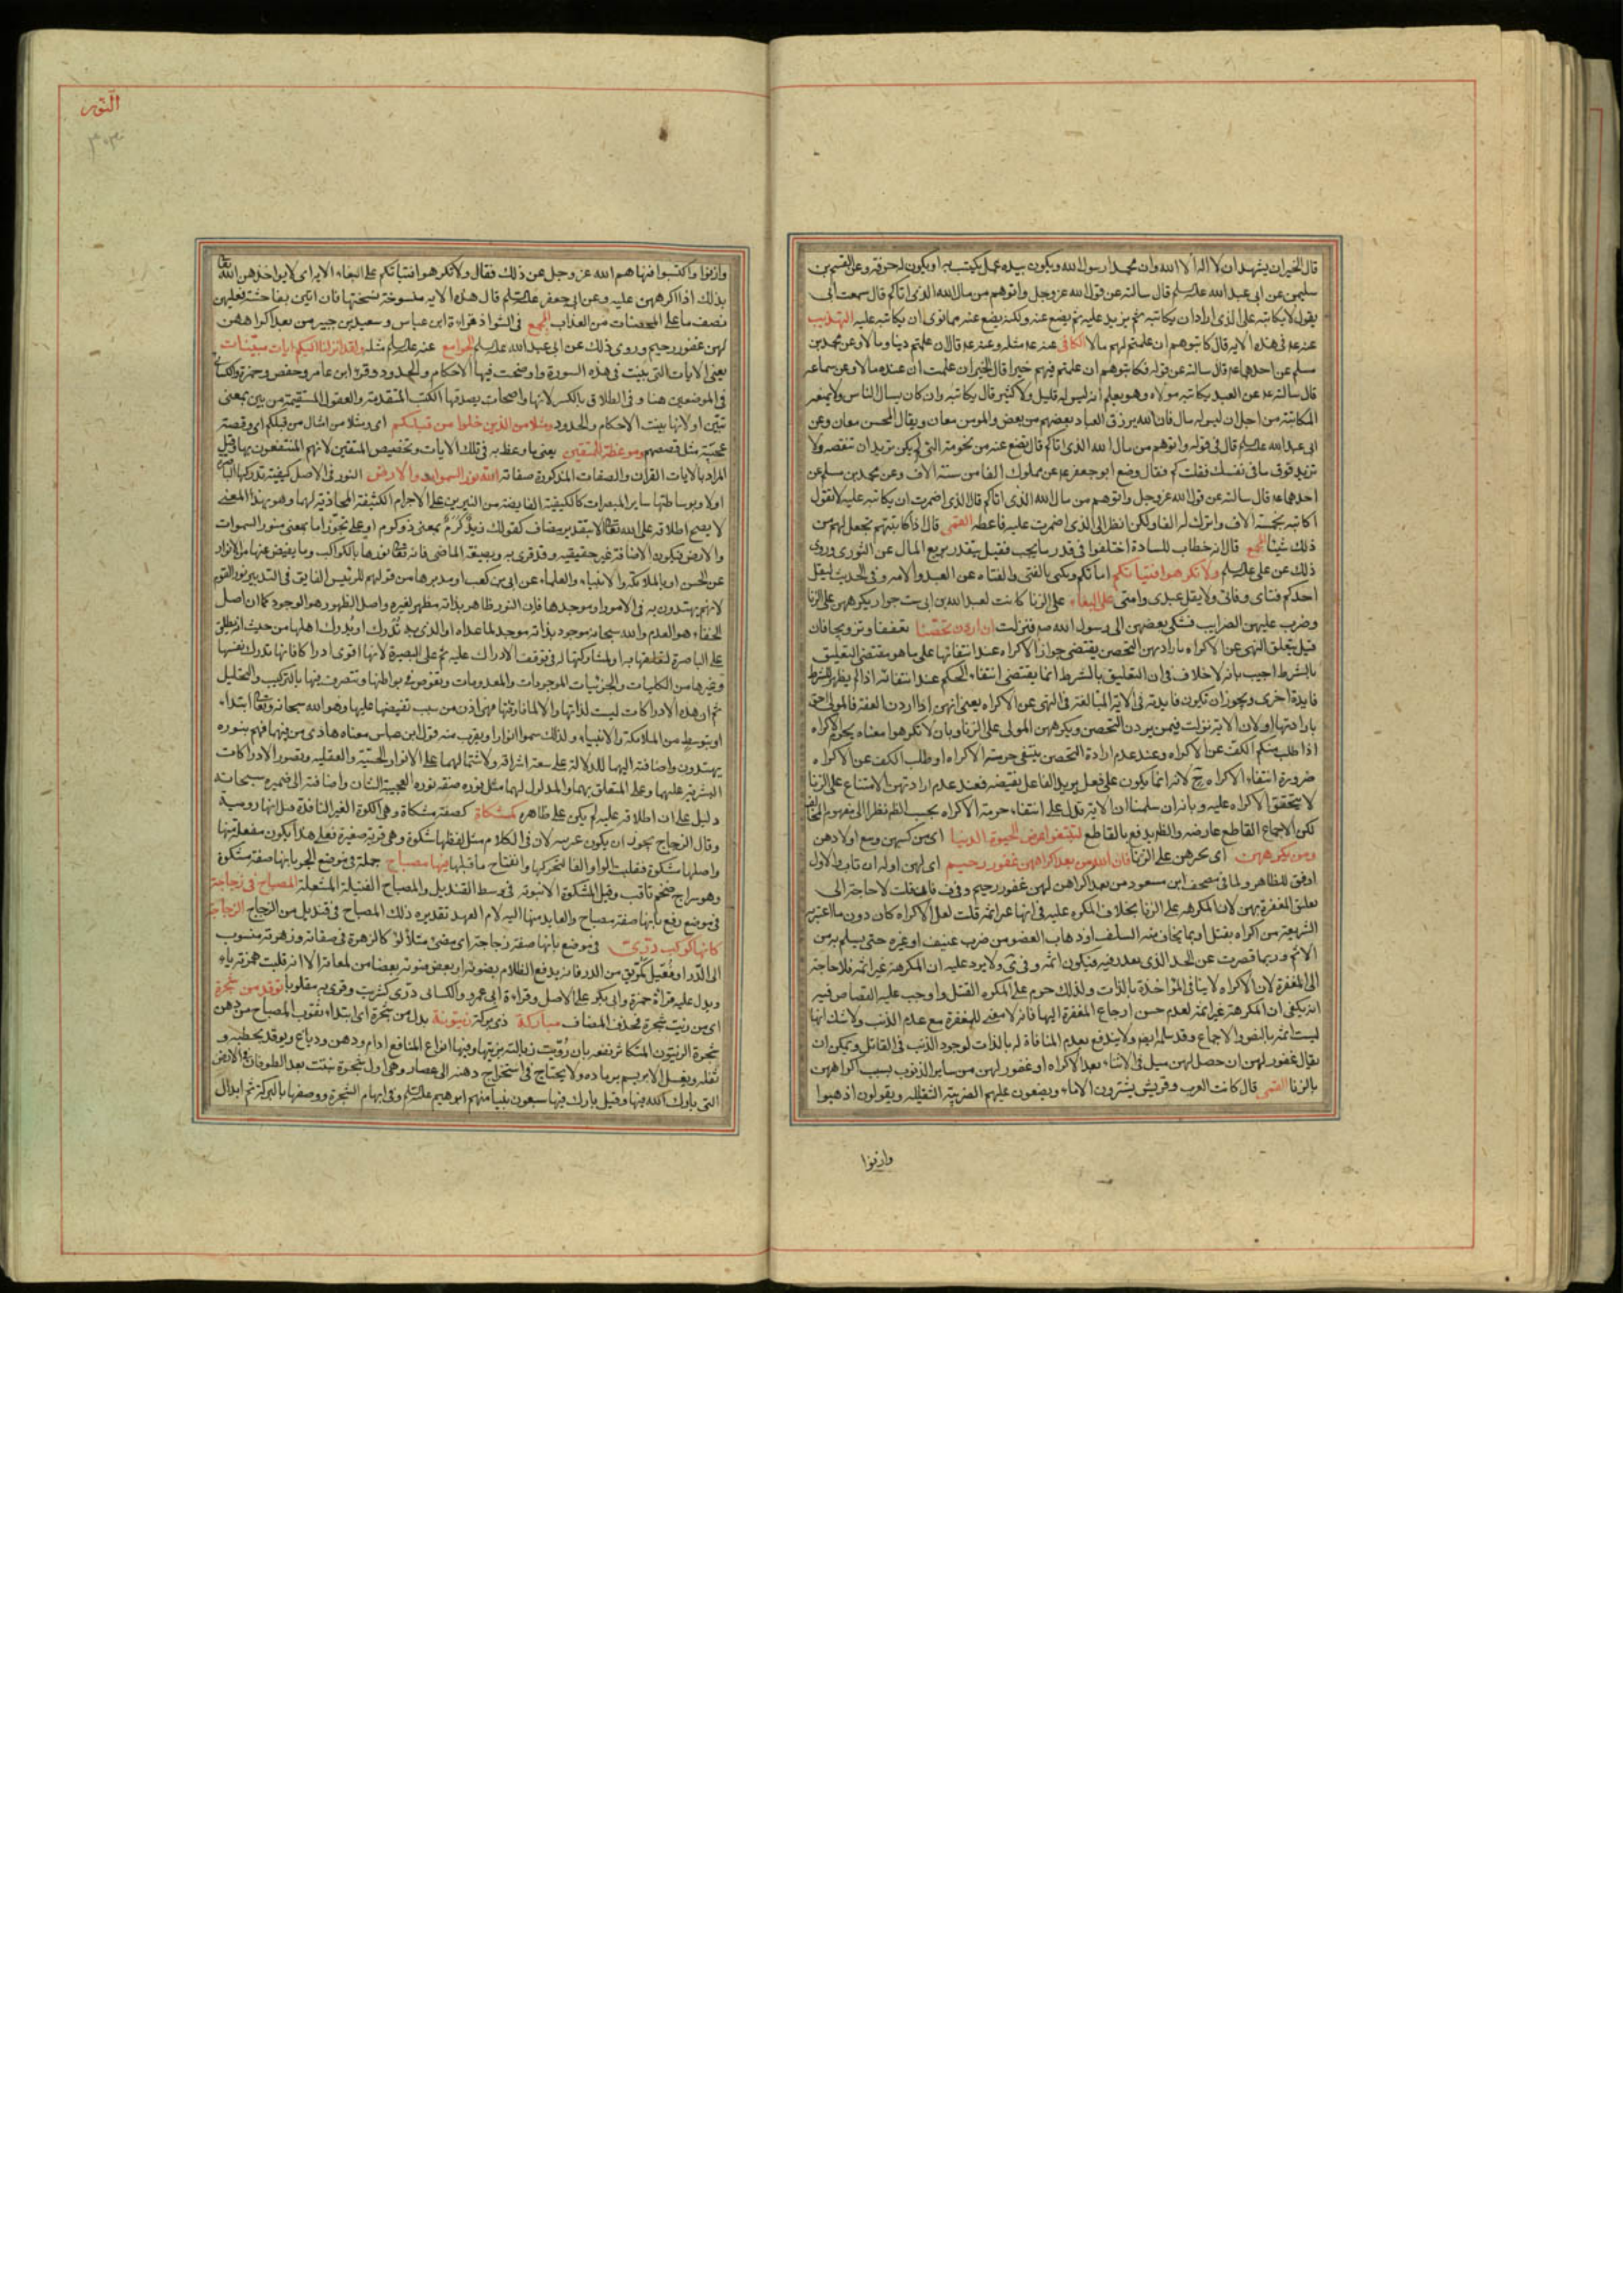 قال الخير ان يشهد ان لا اله الا الله وان محمدا رسول الله ويكون بيده عمل يكتسب به او يكون له حرفة وعن القسم بن
سليمن عن ابى عبد الله عليه السلم قال سالته عن قول الله عز وجل واتوهم من مال الله الذى اتاكم قال سمعت ابى
يقول لا يكاتبه على الذى اراد ان يكاتبه ثم يزيد عليه ثم يضع عنه ولكنه يضع عنه مما نوى ان يكاتبه عليه التهذيب
عنه ع فى هذه الايه قال كاتبوهم ان علمتم لهم مالا الكافى عنه ع مثله وعنه ع قال ان علمتم دينا ومالا وعن محمد بن
مسلم عن احدهما ع قال سالته عن قوله فكاتبوهم ان علمتم فيهم خيرا قال الخير ان علمت ان عنده مالا وعن سماعه
قال سالته ع عن العبد يكاتبه مولاه وهو يعلم انه ليس له قليل ولا كثير قال يكاتبه وان كان يسال الناس ولا يمنعه
المكاتبة من اجل ان ليس له مال فان الله يرزق العباد بعضهم من بعض والمومن معان ويقال المحسن معان وعن
ابى عبد الله عليه السلم قال فى قوله واتوهم من مال الله الذى اتاكم قال يضع عنه من نجومه التى لم يكن تريد ان تنقصه ولا
تزيد فوق ما فى نفسك فقلت كم فقال وضع ابو جعفر ع عن مملوك الفا من ستة الاف وعن محمد بن مسلم عن
احدهما ع قال سالته عن قول الله عز وجل واتوهم من مال الله الذى اتاكم قال الذى اضمرت ان يكاتبه عليه لا تقول
اكاتبه بخمسة الاف واترك له الفا ولكن انظر الى الذى اضمرت عليه فاعطه القمى قال اذا كاتبتهم تجعل لهم من
ذلك شيئا المجمع قال انه خطاب للسادة اختلفوا فى قدر ما يجب فقيل يتقدر بربع المال عن الثورى وروى
ذلك عن على عليه السلم ولا تكرهوا فتياتكم امائكم ويكنى بالفتى والفتاه عن العبد والامه وفى الحديث ليقل
احدكم فتاى وفتاتى ولا يقل عبدى وامتى على البغاء على الزنا كانت لعبد الله بن ابى ست جوار يكرههن على الزنا
وضرب عليهن الضرايب فشكى بعضهن الى رسول الله ص فنزلت ان اردن تحصنا تعففا وتزويجا فان
قيل تعلق النهى عن الاكراه بارادتهن التحصن يقتضى جواز الاكراه عند انتفائها على ما هو مقتضى التعليق
بالشرط اجيب بانه لا خلاف فى ان التعليق بالشرط انما يقتضى انتفاء الحكم عند انتفائه اذا لم يظهر للشرط
فايدة اخرى ويجوز ان تكون فايدته فى الاية المبالغة فى النهى عن الاكراه يعنى انهن اذا اردن العفة فالمولى احق
بارادتها او لان الاية نزلت فيمن يردن التحصن ويكرههن المولى على الزنا وبان لا تكرهوا معناه يحرم الاكراه
اذا طلب منكم الكف عن الاكراه وعند عدم ارادة التحصن ينتفى حرمة الاكراه او طلب الكف عن الاكراه
ضرورة انتفاء الاكراه ح لانه انما يكون على فعل يريد الفاعل نقيضه فعند عدم ارادتهن الامتناع على الزنا
لا يتحقق الاكراه عليه وبانه ان سلمنا ان الاية تدل على انتفاء حرمة الاكراه بحسب الظ نظرا الى مفهوم المخالفة
لكن الاجماع القاطع عارضه والظ يدفع بالقاطع لتبتغوا عرض الحيوة الدنيا اى من كسبهن وبيع اولادهن
ومن يكرههن اى يجبرهن على الزنا فان الله من بعد اكراههن غفور رحيم اى لهن او له ان تاب والاول
اوفق للظاهر ولما فى مصحف ابن مسعود من بعد اكراههن لهن غفور رحيم وفى ف فان قلت لا حاجة الى
تعليق المغفرة بهن لان المكرهه على الزنا بخلاف المكره عليه فى انها غير اثمة قلت لعل الاكراه كان دون ما اعتبرته
الشريعة من اكراه بقتل او بما يخاف منه التلف او ذهاب العضو من ضرب عنيف او غيره حتى يسلم به من
الاثم وربما قصرت عن الحد الذى يعذر فيه فيكون اثمة وفى ى ولا يرد عليه ان المكرهة غير اثمة فلا حاجة
الى المغفرة لان الاكراه لا ينافى المؤاخذة بالذات ولذلك حرم على المكره القتل واوجب عليه القصاص وفيه
انه يكفى ان المكرهة غير اثمة لعدم حسن ارجاع المغفرة اليها فانه لا معنى للمغفرة مع عدم الذنب ولا شك انها
ليست اثمة بالنص والاجماع وقد سلم ايضا ولا يندفع بعدم المنافاة له بالذات لوجود الذنب فى القاتل ويمكن ان
يقال غفور لهن ان حصل لهن ميل فى الاثناء بعد الاكراه او غفور لهن من ساير الذنوب بسبب اكراههن
بالزنا القمى قال كانت العرب وقريش يشترون الاماء ويضعون عليهم الضريبة الثقيله ويقولون اذهبوا
وازنوا
النور
٣٠٣
وازنوا واكتسبوا فنهاهم الله عز وجل عن ذلك فقال ولا تكرهوا فتياتكم على البغاء الايه اى لا يواخذهن الله تعا
بذلك اذا اكرههن عليه وعن ابى جعفر عليه السلم قال هذه الايه منسوخة نسختها فان اتين بفاحشة فعليهن
نصف ما على المحصنات من العذاب المجمع فى الشواذ قراءة ابن عباس وسعيد بن جبير من بعد اكراههن
لهن غفور رحيم وروى ذلك عن ابى عبد الله عليه السلم الجوامع عنه عليه السلم مثله ولقد انزلنا اليكم ايات مبينات
يعنى الايات التى بينت فى هذه السورة واوضحت فيها الاحكام والحدود وقرئ ابن عامر وحفص وحمزة والكسائى
فى الموضعين هنا وفى الطلاق بالكسر لانها واضحات يصدقها الكتب المتقدمة والعقول المستقيمة من بين بمعنى
تبين او لانها بينت الاحكام والحدود ومثلا من الذين خلوا من قبلكم اى ومثلا من امثال من قبلكم اى وقصة
عجيبة مثل قصصهم وموعظة للمتقين يعنى ما وعظ به فى تلك الايات وتخصيص المتقين لانهم المنتفعون بها وقيل
المراد بالايات القران والصفات المذكورة صفاته الله نور السموات والارض النور فى الاصل كيفية تدركها الباصرة
اولا وبوساطتها ساير المبصرات كالكيفية الفايضة من النيرين على الاجرام الكثيفة المحاذية لهما وهو بهذا المعنى
لا يصح اطلاقه على الله تعا الا بتقدير مضاف كقولك زيد كرم بمعنى ذو كرم او على تجوز اما بمعنى منور السموات
والارض فيكون الاضافة غير حقيقيه وقد قرئ به وبصيغة الماضى فانه تعا نورها بالكواكب وما يفيض عنها من الانوار
عن الحسن او بالملائكة والانبياء والعلماء عن ابى بن كعب او مدبرها من قولهم للرئيس الفايق فى التدبير نور القوم
لانهم يهتدون به فى الامور او موجدها فان النور ظاهر بذاته مظهر لغيره واصل الظهور هو الوجود كما ان اصل
الخفاء هو العدم والله سبحانه موجود بذاته موجد لما عداه او الذى به تدرك او يدرك اهلها من حيث انه يطلق
على الباصرة لتعلقها به او لمشاركتها له فى توقف الادراك عليه ثم على البصيرة لانها اقوى ادراكا فانها تدرك نفسها
وغيرها من الكليات والجزئيات الموجودات والمعدومات وتغوص فى بواطنها وتتصرف فيها بالتركيب والتحليل
ثم ان هذه الادراكات ليست لذاتها والا لما فارقتها فهى اذن من سبب يفيضها عليها وهو الله سبحانه وتعا ابتداء
او بتوسط من الملائكة والانبياء ولذلك سموا انوارا ويقرب منه قول ابن عباس معناه هادى من فيها فهم بنوره
يهتدون واضافته اليهما للدلالة على سعة اشراقه ولاشتمالهما على الانوار الحسية والعقليه وقصور الادراكات
البشرية عليهما وعلى المتعلق بهما والمدلول لهما مثل نوره صفة نوره العجيبة الشان واضافته الى ضميره سبحانه
دليل على ان اطلاقه عليه لم يكن على ظاهره كمشكاة كصفة مشكاة وهى الكوة الغير النافذة قيل انها رومية
وقال الزجاج يجوز ان يكون عربيه لان فى الكلام مثل لفظها شكوة وهى قربة صغيرة فعلى هذا يكون مفعلة منها
واصلها مشكوة فقلبت الواو الفا لتحركها وانفتاح ما قبلها فيها مصباح جملة فى موضع الجر بانها صفة مشكوة
وهو سراج ضخم ثاقب وقيل المشكوة الانبوبة فى وسط القنديل والمصباح الفتيلة المشعلة المصباح فى زجاجة
فى موضع رفع بانها صفة مصباح والعايد منها اليه لام العهد تقديره ذلك المصباح فى قنديل من الزجاج الزجاجة
كانها كوكب درى فى موضع بانها صفة زجاجة اى مضئ متلألؤ كالزهرة فى صفائه وزهرته منسوب
الى الدر او فعيل كمريق من الدرء فانه يدفع الظلام بضوئه او بعض ضوئه بعضا من لمعانه الا انه قلبت همزته ياء
ويدل عليه قراءة حمزة وابى بكر على الاصل وقراءة ابى عمرو والكسائى درئ كشريب وقرئ به مقلوبا توقد من شجرة
اى من زيت شجرة فحذف المضاف مباركة ذى بركة زيتونة بدل من شجرة اى ابتداء ثقوب المصباح من دهن
شجرة الزيتون المتكاثر نفعه بان رويت زبالته بزيتها وفيها انواع المنافع ادام ودهن ودباغ ويوقد بحطبه و
ثفله ويغسل الابريسم برماده ولا يحتاج فى استخراج دهنه الى عصار وهى اول شجرة نبتت بعد الطوفان فى الارض
التى بارك الله فيها وقيل بارك فيها سبعون نبيا منهم ابراهيم عليه السلم وفى ابهام الشجرة ووصفها بالبركة ثم ابدال